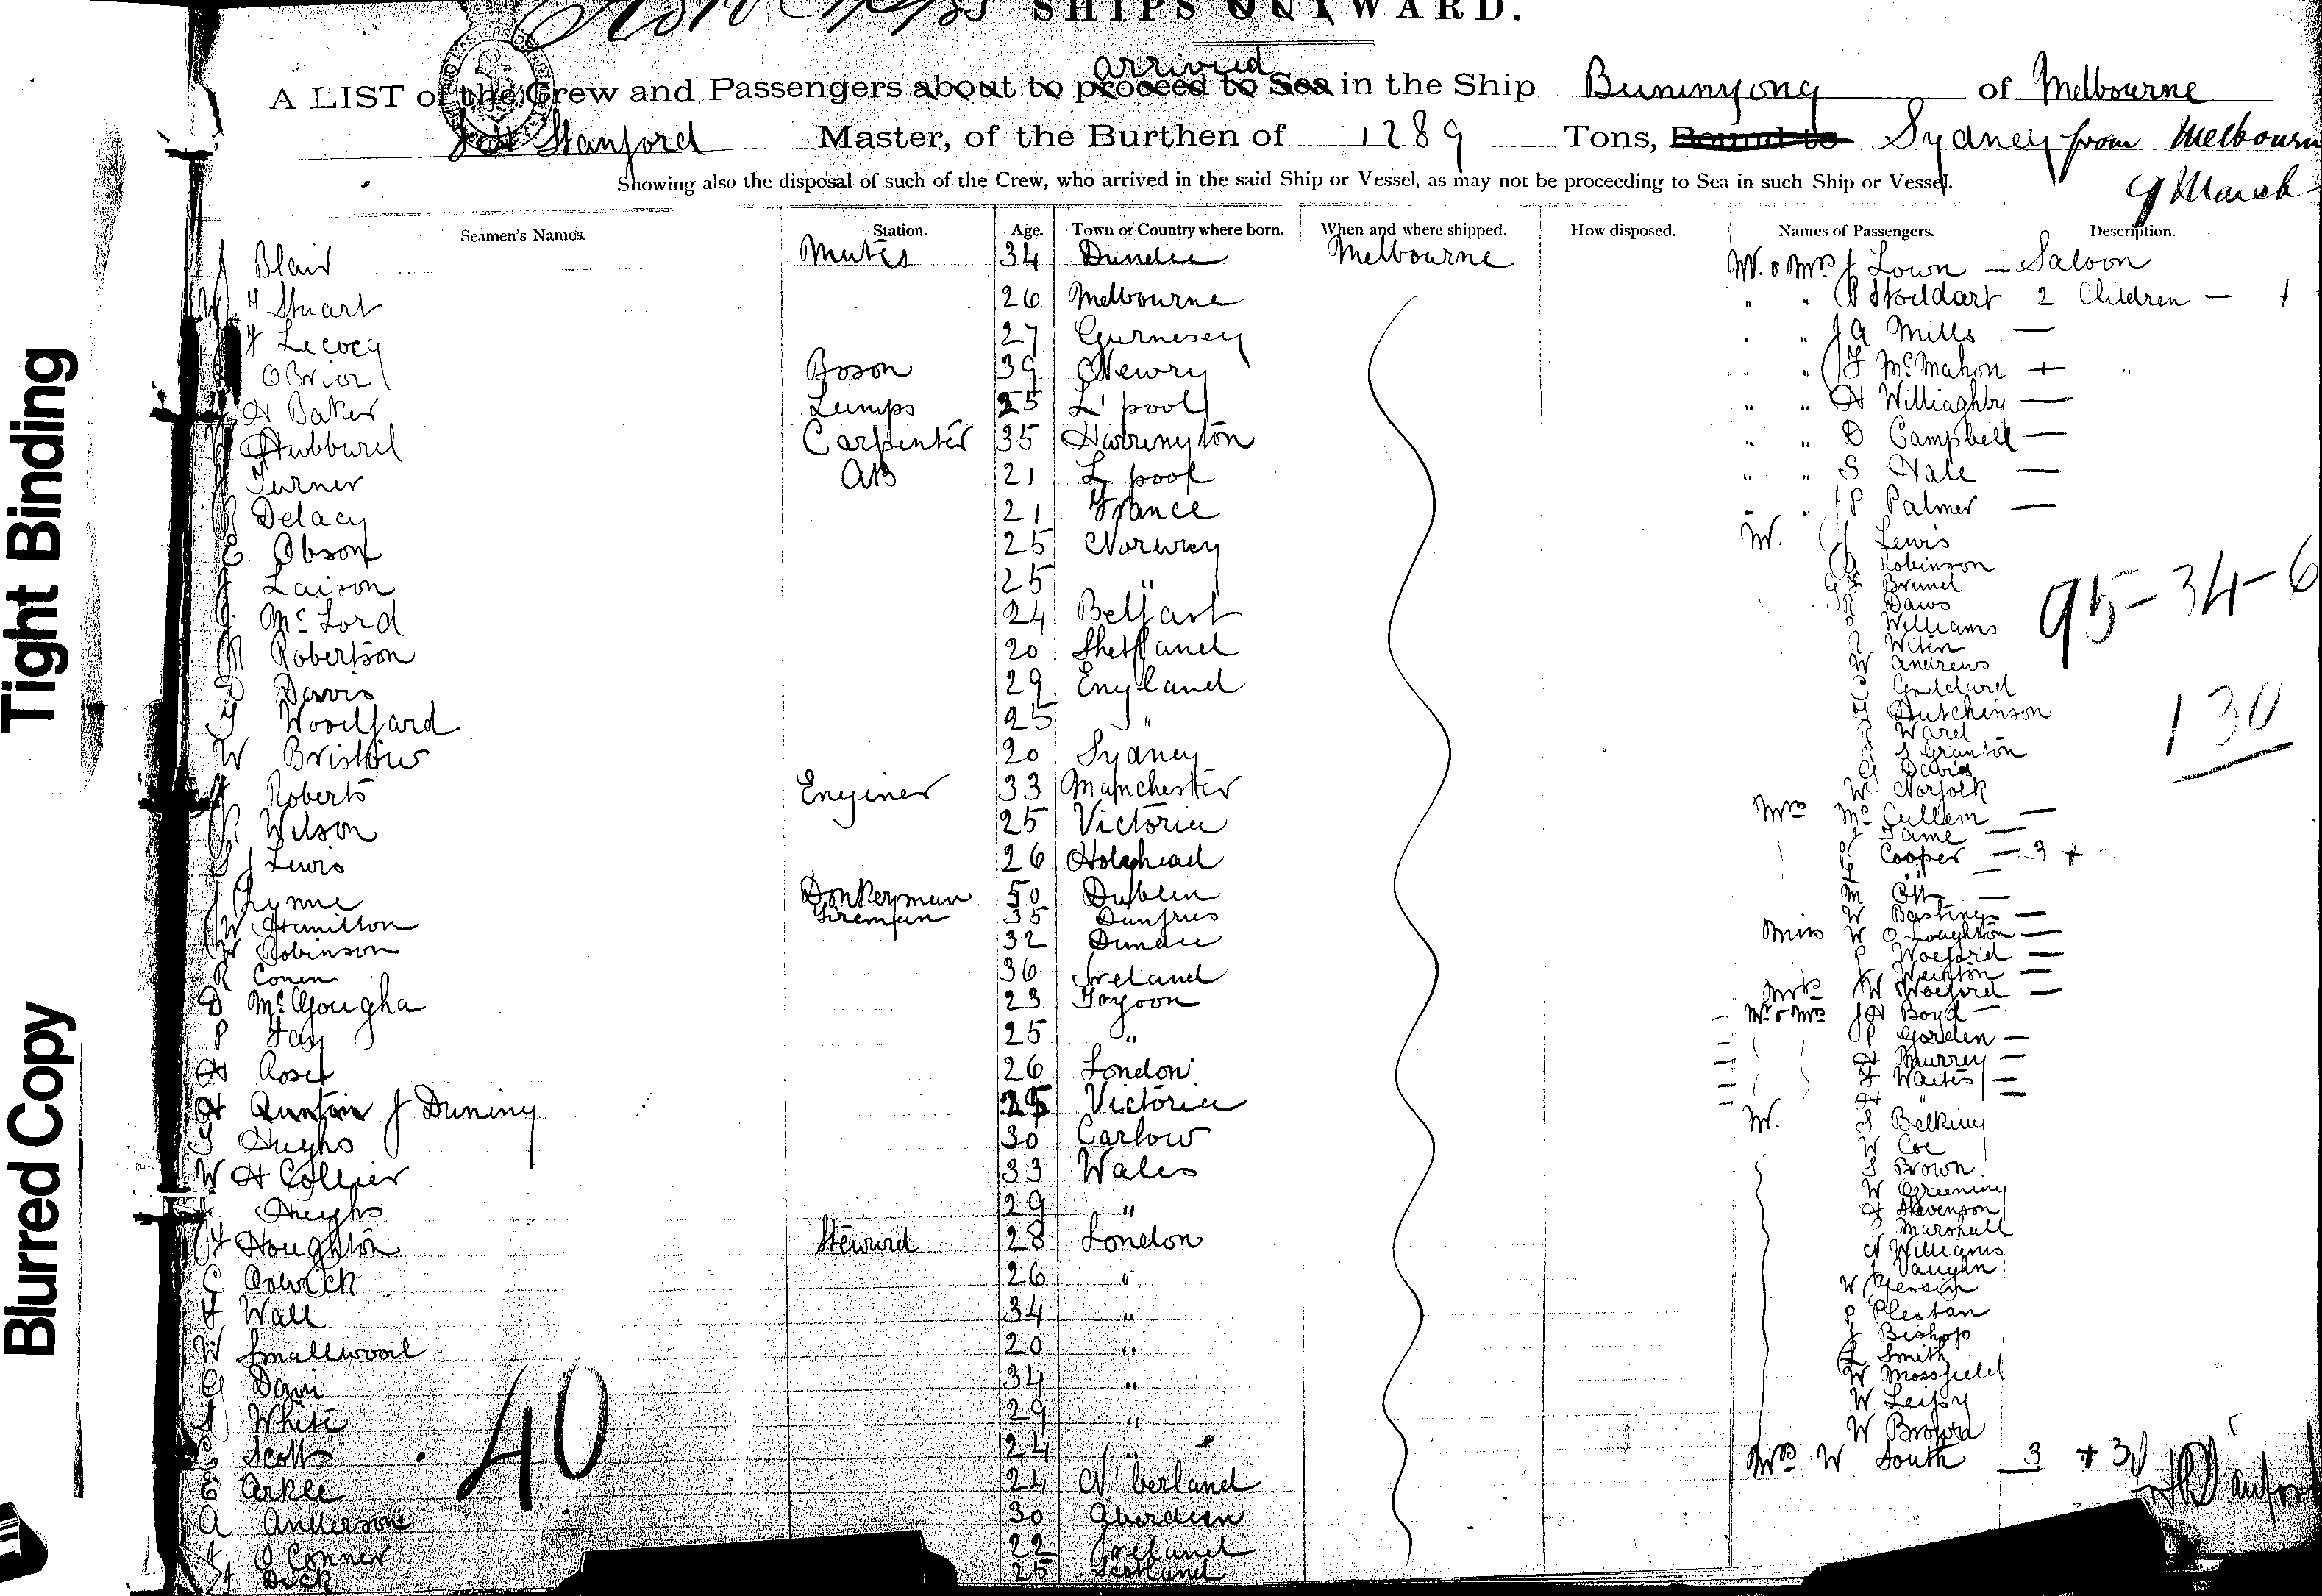 SHIPS OUTWARD.
arrived
A LIST of the Crew and Passengers about to proceed to Sea in the Ship Buninyong of Melbourne
J H Stanford Master, of the Burthen of 1289 Tons, Bound to Sydney from Melbourn
Showing also the disposal of such of the Crew, who arrived in the said Ship or Vessel, as may not be proceeding to Sea in such Ship or Vessel.
9 March
Seamen's Names. Station. Age. Town or Country where born. When and where shipped. How disposed. Names of Passengers. Description.
J Blair Mates 34 Dundee Melbourne
Stuart 26 Melbourne
Lecocq 27 Gurnesey
O Brien Boson 39 Newry
H Baker Lumps 25 L'pool
Hubburd Carpenter 35 Harrington
Turner AB 21 L pool
Delacy 21 France
E Obson 25 Norway
Laison 25 "
McLord 24 Belfast
Robertson 20 Shetland
D Davis 29 England
Woodfard 25 "
W Bristow 20 Sydney
Roberts Enginer 33 Manchester
Wilson 25 Victoria
Lewis 26 Holyhead
Lynne Donkeyman 50 Dublin
W Hamilton Fireman 35 Dunfries
W Robinson 32 Dundee
R Conen 36 Ireland
D McGougha 23 Tryoon
P Fay 25 "
H Rose 26 London
H J Duning 25 Victoria
Hughs 30 Carlow
W H Collier 33 Wales
Hughs 29 "
Houghton Steward 28 London
C 26 "
F Wall 34 "
W Smallwood 20 "
G Dann 34 "
White 29 "
Scott 24 "
E Arkle 24 N'berland
A Anderson 30 Aberdeen
O Conner 22 Ireland
Dick 25 Scotland
40
Mr & Mrs J Lown — Saloon
" " R Stoddart 2 Children —
" " J A Mills —
" " F McMahon + "
" " H Williaghby —
" " D Campbell —
" " S Hale —
" " P Palmer —
Mr. J Lewis
Robinson
Brunel
Daws
Williams
Witen
W Andrews
Goddard
Hutchinson
Ward
S Granton
G Davis
W Norfolk
Mrs McCullem —
J Tame —
Cooper — 3 +
"
M Ott —
W Bastings —
Miss W O Loughton —
—
Weinton —
Mrs W —
Mr & Mrs J H Boyd —
P Gorden —
H Murrey —
F Waites —
H "
Mr. S Belking
W Coe
S Brown
W Greening
H Stevenson
P Marshall
N Williams
J Vaughn
W
P Plestan
J Bishop
L Smith
W Mossfield
W
W Brown
Mrs W South 3 + 3
95-34-6
130
Tight Binding
Blurred Copy